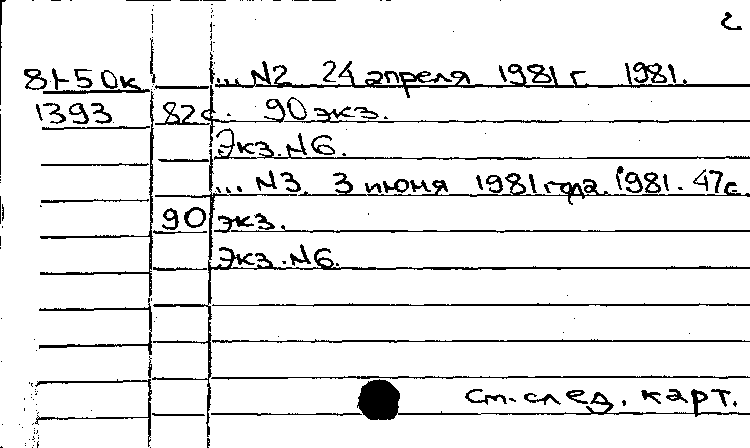 2
81-50к ... N2 24 апреля 1981 г 1981.
1393 82с. 90 экз.
Экз. N6.
... N3. 3 июня 1981 года. 1981. 47с.
90 экз.
Экз. N6.
См. след. карт.